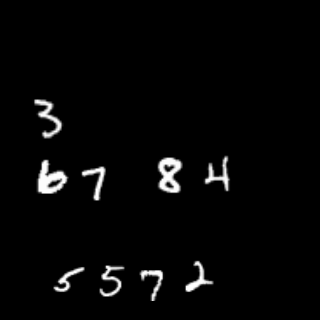 3
67 84
5572